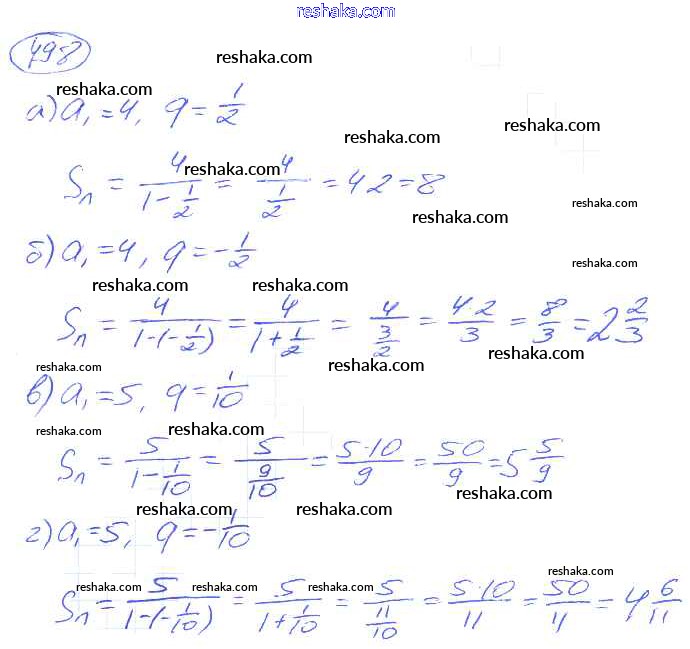 reshaka.com
498
reshaka.com
reshaka.com
а) a₁ = 4, q = 1/2
reshaka.com
reshaka.com
reshaka.com
Sₙ = 4/(1 - 1/2) = 4/(1/2) = 4·2 = 8
reshaka.com
reshaka.com
б) a₁ = 4, q = -1/2
reshaka.com
reshaka.com reshaka.com
Sₙ = 4/(1-(-1/2)) = 4/(1 + 1/2) = 4/(3/2) = 4·2/3 = 8/3 = 2 2/3
reshaka.com
reshaka.com
в) a₁ = 5, q = 1/10
reshaka.com
reshaka.com reshaka.com
Sₙ = 5/(1 - 1/10) = 5/(9/10) = 5·10/9 = 50/9 = 5 5/9
reshaka.com
reshaka.com reshaka.com
г) a₁ = 5, q = -1/10
reshaka.com
reshaka.com reshaka.com reshaka.com
Sₙ = 5/(1-(-1/10)) = 5/(1 + 1/10) = 5/(11/10) = 5·10/11 = 50/11 = 4 6/11